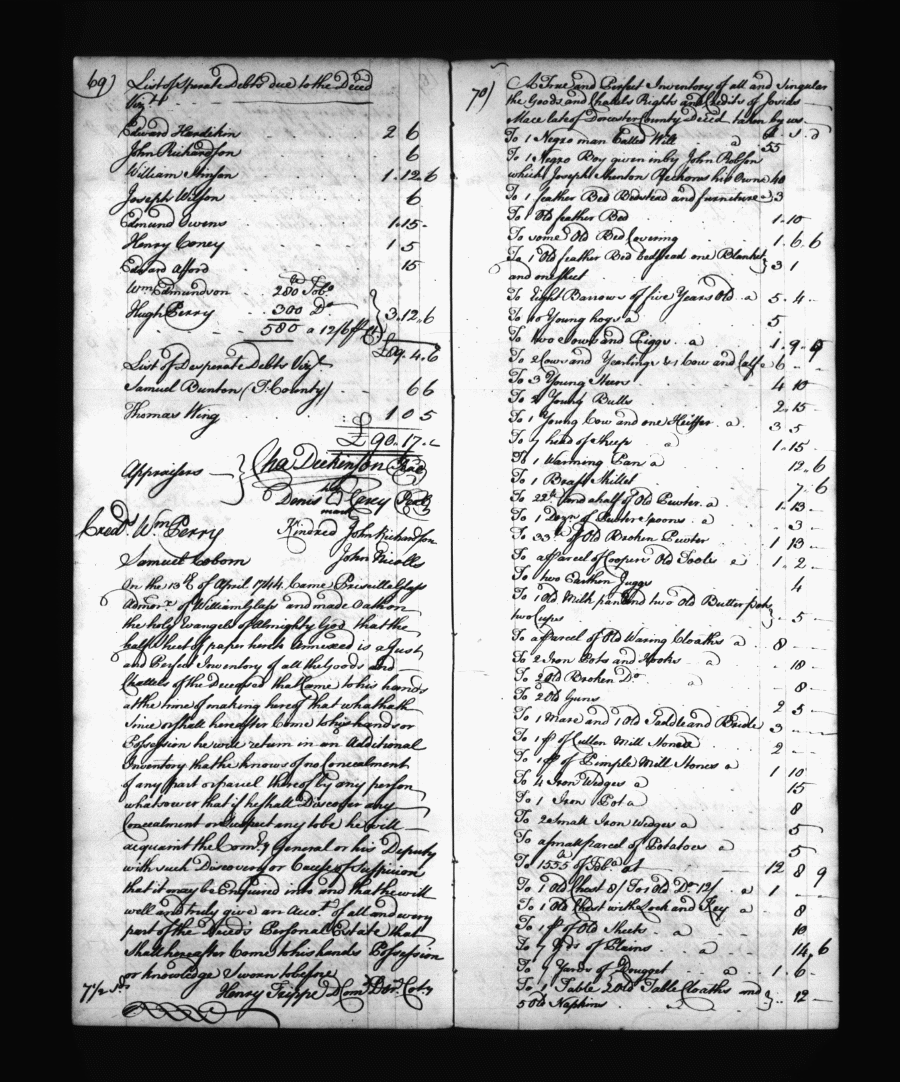 69)
List of Sperate Debts due to the Deced
Viz.t
Edward Hardikin 2 6
John Richardson 6
William Stinson 1..12..6
Joseph Wilson 6
Edmund Owens 1..15..
Henry Coney 1 5
Edward Alford 15
Wm. Edmundson 280 Tobo
Hugh Perry 300 Do
580 a 12/6 3..12..6
£89..4..6
List of Desperate Debts Viz.t
Samuel Bunton (T: County) 6 6
Thomas Wing 1 0 5
£90..17..
Appraisers Cha Dickinson
Denis Carey
mark
Creds Wm Perry Kindred John Richardson
Samuel Coborn John Nicolls
On the 13th of April 1744. Came Glass
Admor. of William Glass and made Oath on
the holy Evangels of Almighty God that the
half Sheet of paper hereto Annexed is a Just
and Perfect Inventory of all the Goods and
Chattels of the Deceased that Came to his hands
at the time of making hereof that what hath
Since or shall hereafter Come to his hands or
Possession he will return in an Additional
Inventory that he knows of no Concealment
of any part or parcel thereof by any person
whatsoever that if he shall Discover any
Concealment or Suspect any to be he will
acquaint the Comry General or his Deputy
with such Discovery or Cause of Suspicion
that it may be Enquired into and that he will
well and truly give an Acct. of all and every
part of the Deceds Personal Estate that
Shall hereafter Come to his hands Possession
or knowledge Sworn to before
7 1/2 Sds Henry Trippe D Com Dor. Coty
70)
A True and Perfect Inventory of all and Singular
the Goods and Chatels Rights and Credits of Josias
Mace late of Dorcester County Deced taken by us
£ s d
To 1 Negro man Called Will a 55
To 1 Negro Boy given in by John Robson
which Joseph Stanton Reckons his Own a 40
To 1 feather Bed Bedstead and furniture a 3
To 1 Old feather Bed 1..10
To some Old Bed Covering 1..6..6
To 1 Old feather Bed Bedstead one Blanket
and one sheet 3 1
To Eight Barrows of five Years Old a 5..4
To Young hogs a 5
To two Sows and Piggs a 1..9..9
To 2 Cows and Yearlings & 1 Cow and Calf a 6
To 3 Young Steers 4 10
To 2 Young Bulls 2..15
To 1 Young Cow and one Heiffer a 3 5
To 7 head of Sheep a 1..15
To 1 Warming Pan a 12..6
To 1 Brass Skillet 7..6
To 22 lb and a half of Old Pewter a 1..13
To 1 Dozn of Pewter Spoons a 3
To 33 lb of Old Broken Pewter 1 13
To a parcel of Coopers Old Tools a 1..2
To two Earthen Juggs 4
To 1 Old Milk pan and two Old Butter pots
two Cups 5
To a Parcel of Old Waring Cloaths a 8
To 2 Iron Pots and Hooks a 18
To 2 Old Broken Do a 8
To 2 Old Guns 2 5
To 1 Mare and 1 Old Saddle and Bridle 3
To 1 pr of Cullen Mill Stones 2
To 1 pr of Pimple Mill Stones a 1 10
To 4 Iron Wedges a 15
To 1 Iron Pot a 8
To 2 Small Iron Wedges a 5
To a small parcel of Potatoes a 5
To 1555 lb of Tobo at 12 8 9
To 1 Old Chest 8/ To 1 Old Do 12/ a 1
To 1 Old Chest with Lock and Key a 8
To 1 pr of Old Sheets a 10
To 7 Yds of Plains a 14..6
To 7 Yards of Drugget a 1..6
To 1 Table 2 Old Table Cloaths and
5 Old Napkins 12